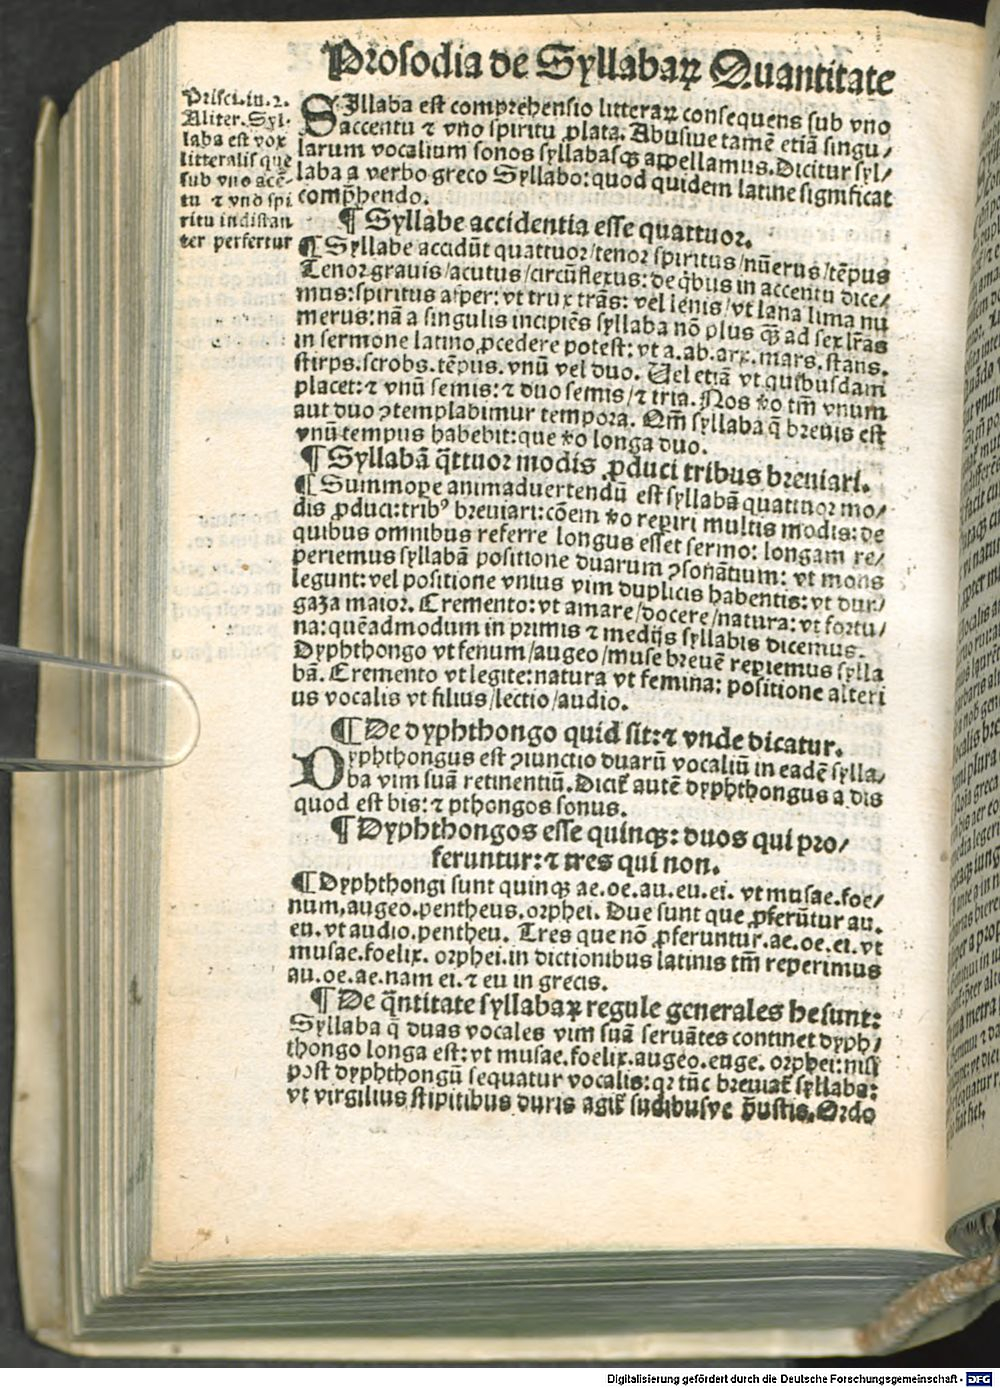 Prosodia de Syllabaꝝ Quantitate
Prisci.in.2.
Aliter.Syl-
laba est vox
litteralis que
sub vno acē-
tu ⁊ vno spi
ritu indistan
ter perfertur
SIllaba est comprehensio litteraꝝ consequens sub vno
accentu ⁊ vno spiritu ꝓlata. Abusiue tamē etiā singu/
larum vocalium sonos syllabasqꝫ appellamus. Dicitur syl/
laba a verbo greco Syllabo: quod quidem latine significat
comp̄hendo.
¶ Syllabe accidentia esse quattuor.
¶ Syllabe accidūt quattuor/tenor spiritus/nūerus/tēpus
Tenor grauis/acutus/circūflexus: de q̇bus in accentu dice/
mus: spiritus asper: vt trux trās: vel lenis/vt lana lima nu
merus: nā a singulis incipiēs syllaba nō plus qꝫ̄ ad sex lr̄as
in sermone latino ꝓcedere potest: vt a. ab. arx. mars. stans.
stirps. scrobs. tēpus. vnū vel duo. Uel etiā vt quibusdam
placet: ⁊ vnū semis: ⁊ duo semis/⁊ tria. Nos ꝟo tm̄ vnum
aut duo ꝯtemplabimur tempora. Om̄ syllaba q̄ breuis est
vnū tempus habebit: que ꝟo longa duo.
¶ Syllabā q̄ttuor modis ꝓduci tribus breuiari.
¶ Summope animaduertendū est syllabā quattuor mo/
dis ꝓduci: tribꝰ breuiari: cōem ꝟo reꝑiri multis modis: de
quibus omnibus referre longus esset sermo: longam re/
periemus syllabā positione duarum ꝯsonātium: vt mons
legunt: vel positione vnius vim duplicis habentis: vt dur/
gaza maior. Cremento: vt amare/docere/natura: vt fortu/
na: quēadmodum in primis ⁊ medijs syllabis dicemus.
Dyphthongo vt fenum/augeo/muse breuē reꝑiemus sylla
bā. Cremento vt legite: natura vt femina: positione alteri
us vocalis vt filius/lectio/audio.
¶ De dyphthongo quid sit: ⁊ vnde dicatur.
Dyphthongus est ꝯiunctio duarū vocaliū in eadē sylla/
ba vim suā retinentiū. Dicit̄ autē dyphthongus a dis
quod est bis: ⁊ pthongos sonus.
¶ Dyphthongos esse quinqꝫ: duos qui pro/
feruntur: ⁊ tres qui non.
¶ Dyphthongi sunt quinqꝫ ae. oe. au. eu. ei. vt musae. foe/
num. augeo. pentheus. orphei. Due sunt que ꝓferūtur au.
eu. vt audio. pentheu. Tres que nō ꝓferuntur. ae. oe. ei. vt
musae. foelix. orphei. in dictionibus latinis tm̄ reperimus
au. oe. ae. nam ei. ⁊ eu in grecis.
¶ De q̄ntitate syllabaꝝ regule generales he sunt:
Syllaba q̄ duas vocales vim suā seruātes continet dyph/
thongo longa est: vt musae. foelix. augeo. euge. orphei: nisi
post dyphthongū sequatur vocalis: qꝛ tūc breuiat̄ syllaba:
vt virgilius stipitibus duris agit̄ sudibusve p̄ustis. Ordo
Digitalisierung gefördert durch die Deutsche Forschungsgemeinschaft - DFG